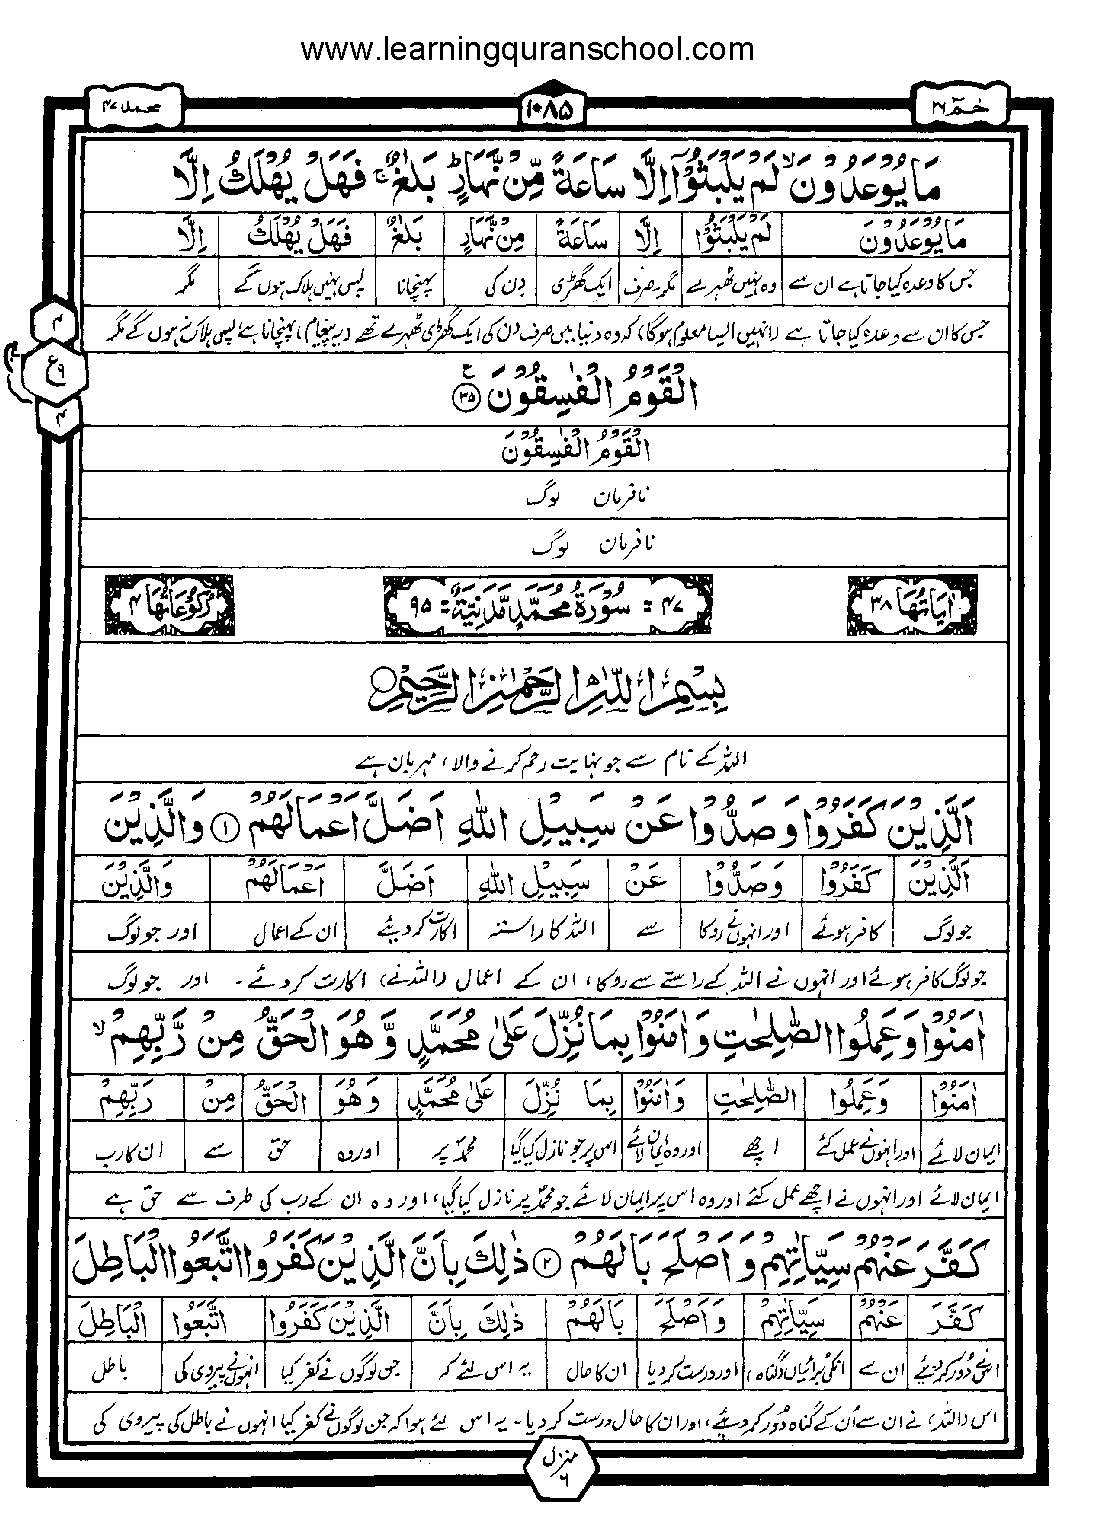 www.learningquranschool.com
حٰمٓ ۲۶
۱۰۸۵
محمد ۴۷
مَا يُوْعَدُوْنَ ۙ لَمْ يَلْبَثُوْۤا اِلَّا سَاعَةً مِّنْ نَّهَارٍ ؕ بَلٰغٌ ۚ فَهَلْ يُهْلَكُ اِلَّا
مَا يُوْعَدُوْنَ لَمْ يَلْبَثُوْۤا اِلَّا سَاعَةً مِنْ نَّهَارٍ بَلٰغٌ فَهَلْ يُهْلَكُ اِلَّا
جس کا وعدہ کیا جاتا ہے ان سے وہ نہیں ٹھہرے مگر صرف ایک گھڑی دن کی پہنچانا پس نہیں ہلاک ہوں گے مگر
جس کا ان سے وعدہ کیا جاتا ہے (انہیں ایسا معلوم ہوگا) کہ وہ دنیا میں صرف دن کی ایک گھڑی ٹھہرے تھے (یہ پیغام) پہنچانا ہے پس ہلاک نہ ہوں گے مگر
۴
ع ۹
۴
الْقَوْمُ الْفٰسِقُوْنَ ۳۵ ع
الْقَوْمُ الْفٰسِقُوْنَ
نافرمان لوگ
نافرمان لوگ
اٰيَاتُهَا ۳۸ ۴۷ = سُوْرَةُ مُحَمَّدٍ مَّدَنِيَّةٌ = ۹۵ رُكُوْعَاتُهَا ۴
بِسْمِ اللّٰهِ الرَّحْمٰنِ الرَّحِيْمِ
اللہ کے نام سے جو نہایت رحم کرنے والا، مہربان ہے
اَلَّذِيْنَ كَفَرُوْا وَ صَدُّوْا عَنْ سَبِيْلِ اللّٰهِ اَضَلَّ اَعْمَالَهُمْ ۱ وَ الَّذِيْنَ
اَلَّذِيْنَ كَفَرُوْا وَصَدُّوْا عَنْ سَبِيْلِ اللّٰهِ اَضَلَّ اَعْمَالَهُمْ وَالَّذِيْنَ
جو لوگ کافر ہوئے اور انہوں نے روکا سے اللہ کا راستہ اکارت کر دیئے ان کے اعمال اور جو لوگ
جو لوگ کافر ہوئے اور انہوں نے اللہ کے راستے سے روکا، ان کے اعمال (اللہ نے) اکارت کر دئے ۔ اور جو لوگ
اٰمَنُوْا وَ عَمِلُوا الصّٰلِحٰتِ وَ اٰمَنُوْا بِمَا نُزِّلَ عَلٰى مُحَمَّدٍ وَّ هُوَ الْحَقُّ مِنْ رَّبِّهِمْ ۙ
اٰمَنُوْا وَعَمِلُوا الصّٰلِحٰتِ وَاٰمَنُوْا بِمَا نُزِّلَ عَلٰى مُحَمَّدٍ وَهُوَ الْحَقُّ مِنْ رَبِّهِمْ
ایمان لائے اور انہوں نے عمل کئے اچھے اور وہ ایمان لائے اس پر جو نازل کیا گیا محمدؐ پر اور وہ حق سے ان کا رب
ایمان لائے اور انہوں نے اچھے عمل کئے اور وہ اس پر ایمان لائے جو محمدؐ پر نازل کیا گیا، اور وہ ان کے رب کی طرف سے حق ہے
كَفَّرَ عَنْهُمْ سَيِّاٰتِهِمْ وَ اَصْلَحَ بَالَهُمْ ۲ ذٰلِكَ بِاَنَّ الَّذِيْنَ كَفَرُوا اتَّبَعُوا الْبَاطِلَ
كَفَّرَ عَنْهُمْ سَيِّاٰتِهِمْ وَاَصْلَحَ بَالَهُمْ ذٰلِكَ بِاَنَّ الَّذِيْنَ كَفَرُوا اتَّبَعُوا الْبَاطِلَ
اس نے دور کر دیئے ان سے انکی برائیاں (گناہ) اور درست کر دیا ان کا حال یہ اس لئے کہ جن لوگوں نے کفر کیا انہوں نے پیروی کی باطل
اس (اللہ) نے ان سے اُن کے گناہ دُور کر دیئے، اور ان کا حال درست کر دیا ۔ یہ اس لئے ہوا کہ جن لوگوں نے کفر کیا انہوں نے باطل کی پیروی کی
منزل ۶